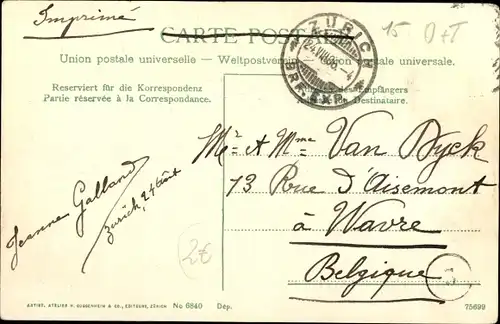 Imprimé
CARTE POSTALE
15 D+T
ZÜRICH
24.VIII.09.-4
BRF. EXP.
Union postale universelle. — Weltpostverein. — Union postale universale.
Reserviert für die Korrespondenz
Partie réservée à la Correspondance.
des Empfängers
Destinataire.
Mr. et Mme Van Dyck
73 Rue d'Aisemont
à Wavre
Belgique
Jeanne Galland
Zurich, 24 août
2€
ARTIST. ATELIER H. GUGGENHEIM & CO., EDITEURS, ZÜRICH
No 6840 Dép.
75699